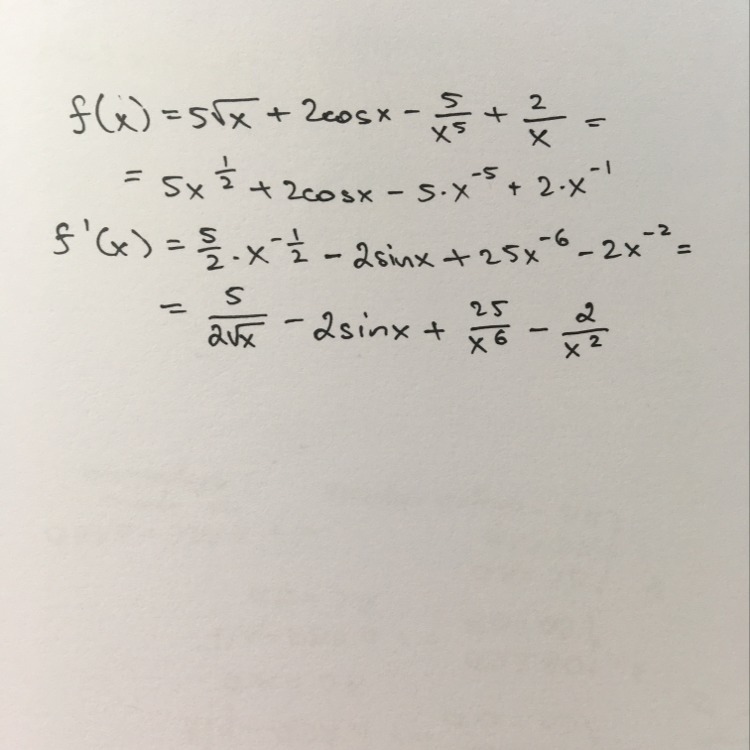 f(x) = 5√x + 2cosx - 5/x⁵ + 2/x =
= 5x^(1/2) + 2cosx - 5·x⁻⁵ + 2·x⁻¹
f'(x) = 5/2·x^(-1/2) - 2sinx + 25x⁻⁶ - 2x⁻² =
= 5/(2√x) - 2sinx + 25/x⁶ - 2/x²